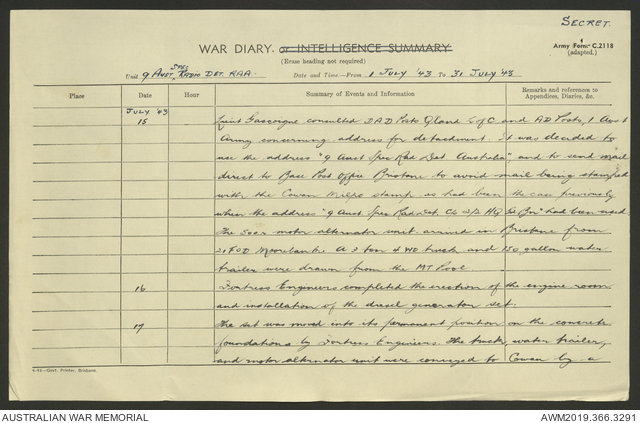 SECRET.
WAR DIARY. or INTELLIGENCE SUMMARY
Army Form C.2118
(adapted.)
(Erase heading not required)
Unit 9 AUST SPEC RADIO DET. RAA. Date and Time—From 1 JULY '43 To 31 JULY '43
Place Date Hour Summary of Events and Information Remarks and references to Appendices, Diaries, &c.
JULY '43
15 Lieut Gascoigne consulted DAD Posts Qland L of C and AD Posts, 1 Aust
Army concerning address for detachment. It was decided to
use the address "9 Aust Spec Rad Det Australia" and to send mail
direct to Base Post Office Brisbane to avoid mail being stamped
with the Cowan Milpo stamp as had been the case previously
when the address "9 Aust Spec Rad Det. C/o HQ Bn" had been used.
The motor alternator unit arrived in Brisbane from
A 3 ton 4 WD truck and 150 gallon water
trailer were drawn from the MT Pool.
16 Fortress Engineers completed the erection of the engine room
and installation of the diesel generator set.
17 The set was moved into its permanent position on the concrete
foundations by Fortress Engineers. The truck, water trailer,
and motor alternator unit were conveyed to Cowan by a
4-43—Govt. Printer, Brisbane.
AUSTRALIAN WAR MEMORIAL
AWM2019.366.3291